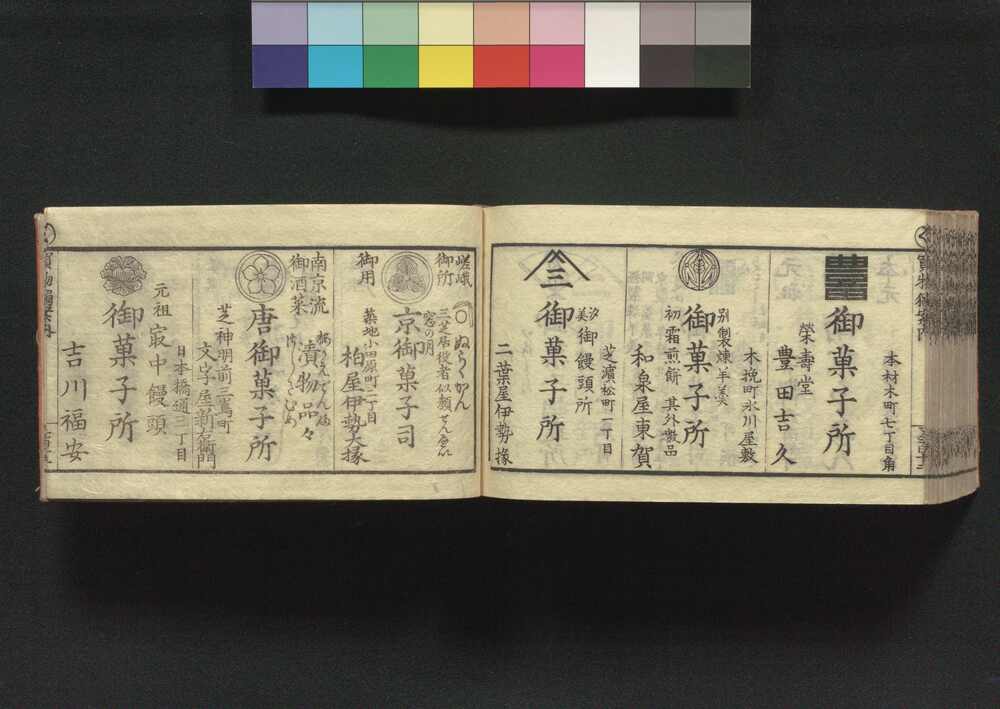 本材木町七丁目角
御菓子所
榮壽堂
豊田吉久
木挽町氷川屋敷
別製煉羊羹
御菓子所
初霜煎餅 其外數品
和泉屋東賀
芝濱松町一丁目
汐美御饅頭所
三
御菓子所
二葉屋伊勢掾
嵯峨
御所
ぬらくかん
三芝居役者似顔せんべい
窓の月
京御菓子司
御用
築地小田原町一丁目
柏屋伊勢大掾
南京流
御酒菜
漬物品々
唐御菓子所
芝神明前三嶌町
文字屋新右衛門
御菓子所
元祖 㝡中饅頭
日本橋通三丁目
吉川福安